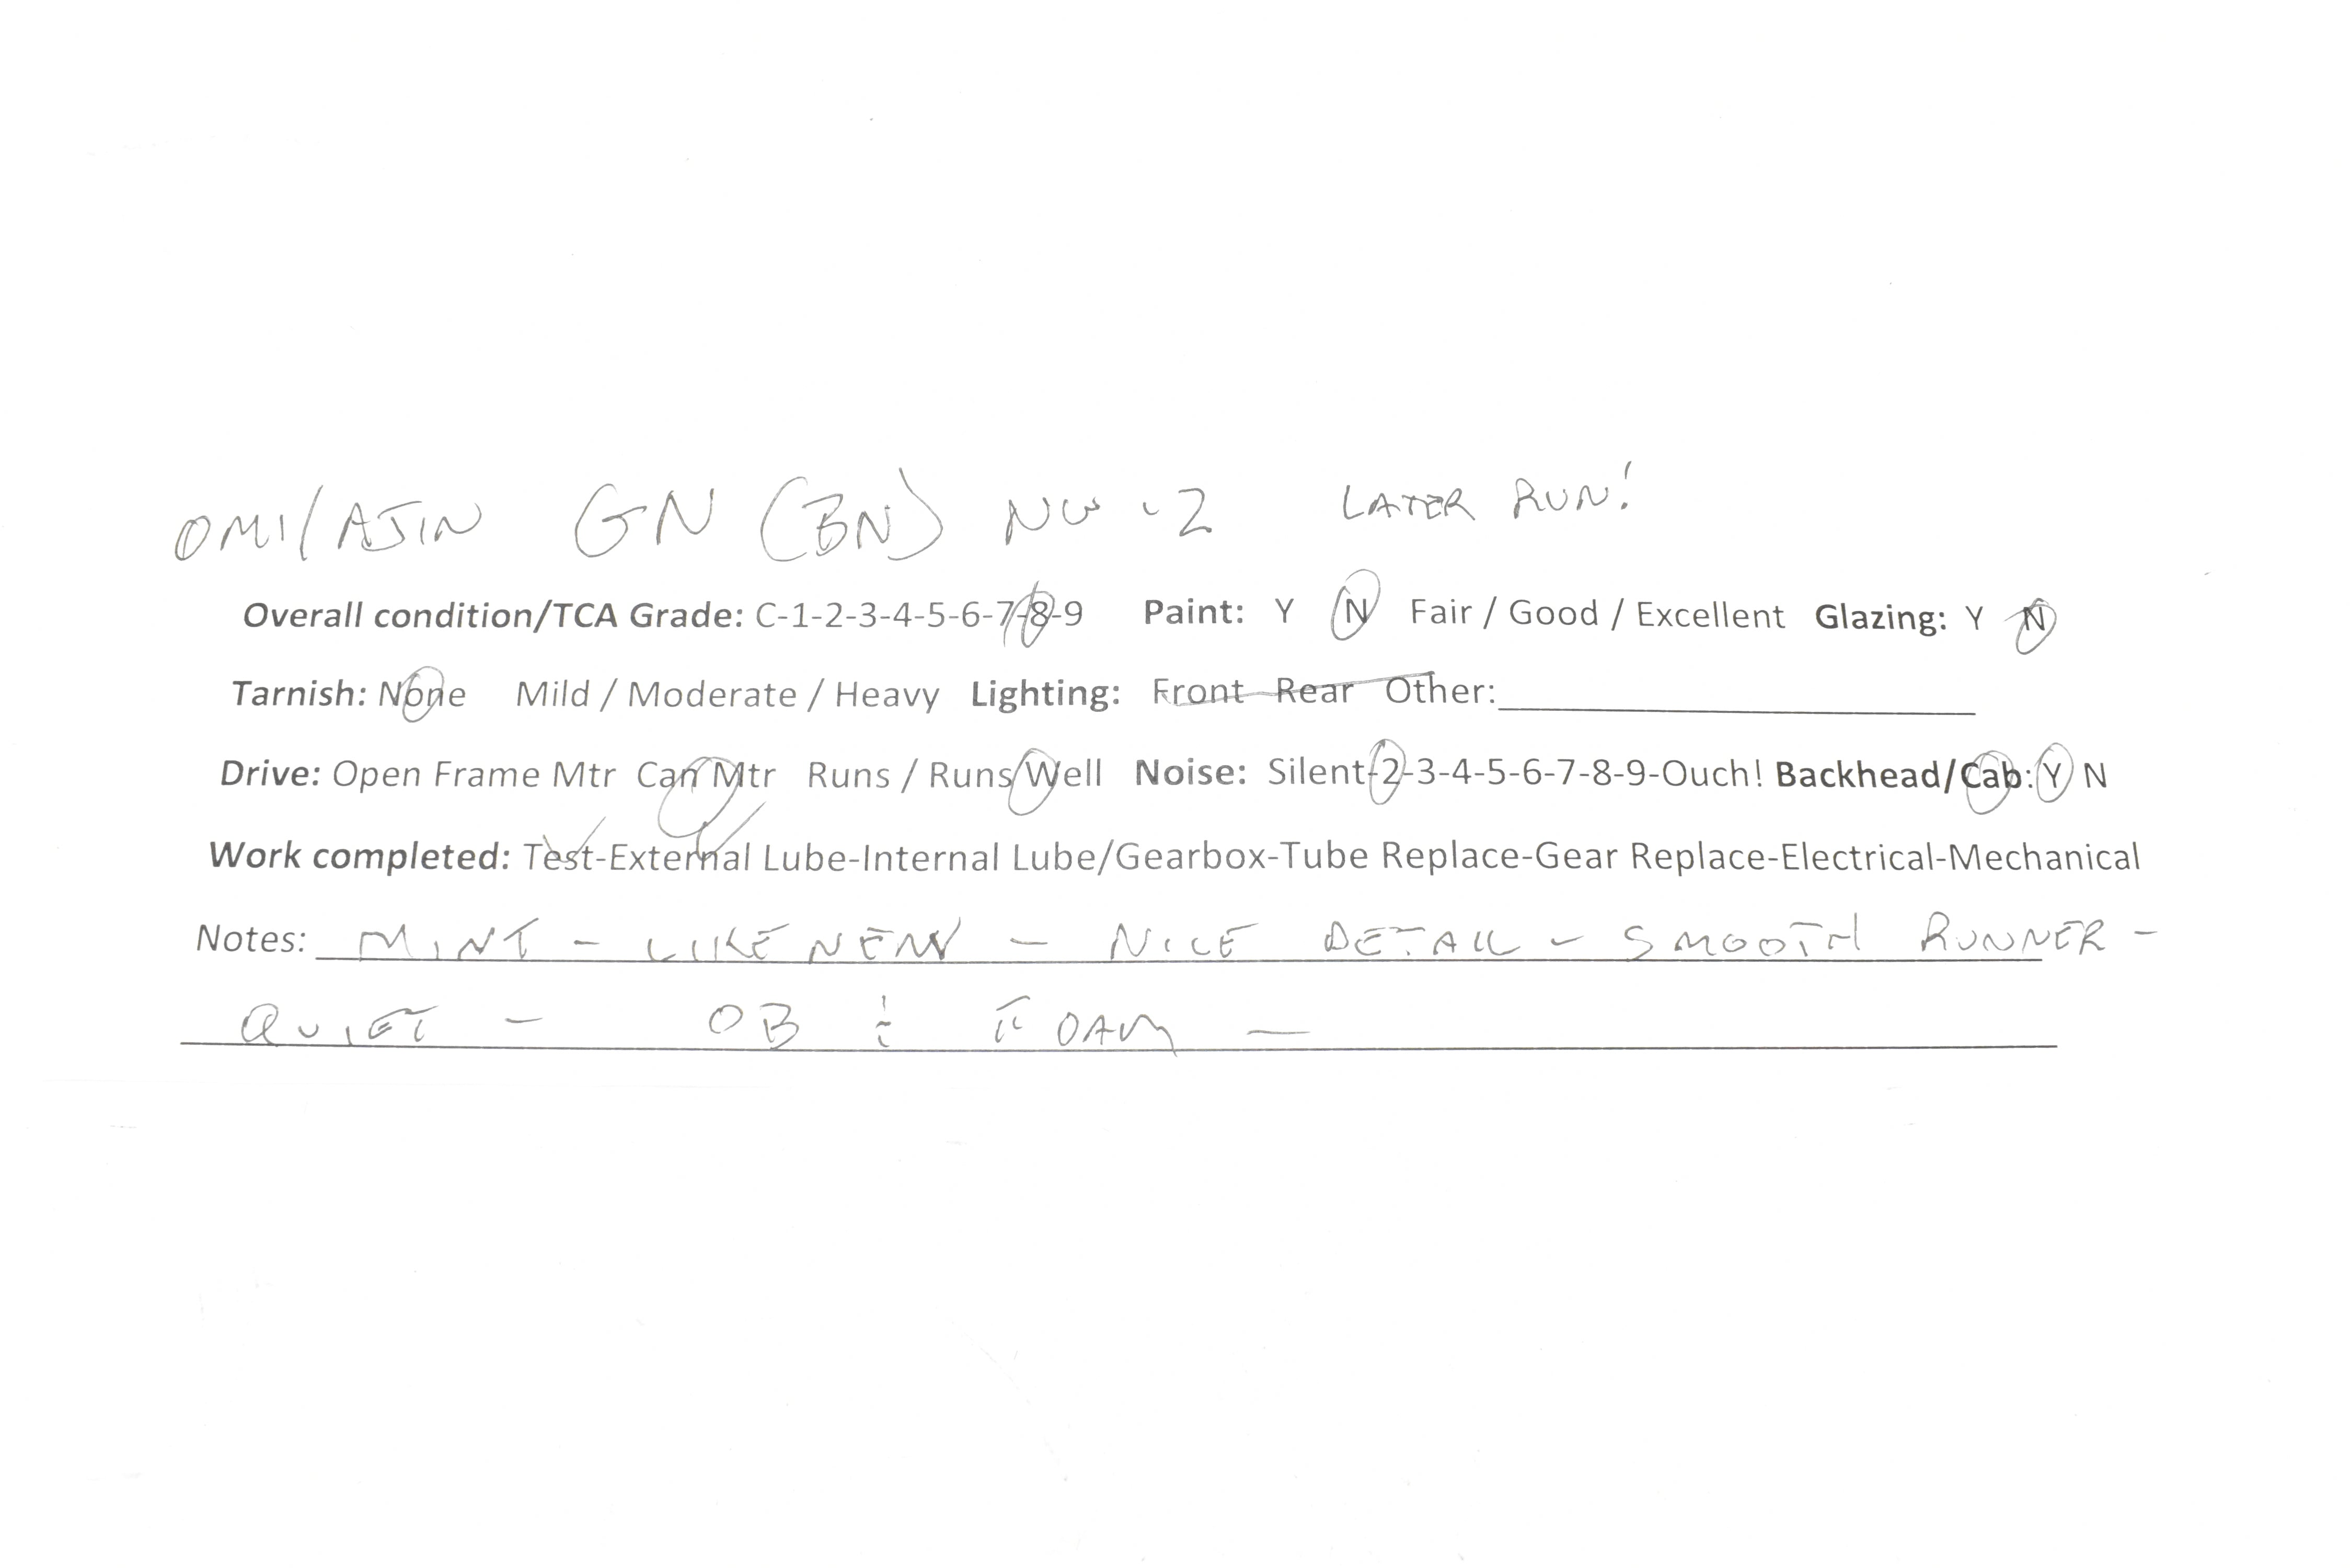 OMI/AJIN GN (BN) NW-2 LATER RUN!
Overall condition/TCA Grade: C-1-2-3-4-5-6-7-8-9 Paint: Y N Fair / Good / Excellent Glazing: Y N
Tarnish: None Mild / Moderate / Heavy Lighting: Front Rear Other:
Drive: Open Frame Mtr Can Mtr Runs / Runs Well Noise: Silent-2-3-4-5-6-7-8-9-Ouch! Backhead/Cab: Y N
Work completed: Test-External Lube-Internal Lube/Gearbox-Tube Replace-Gear Replace-Electrical-Mechanical
Notes: MINT - LIKE NEW - NICE DETAIL - SMOOTH RUNNER -
QUIET - OB & FOAM -